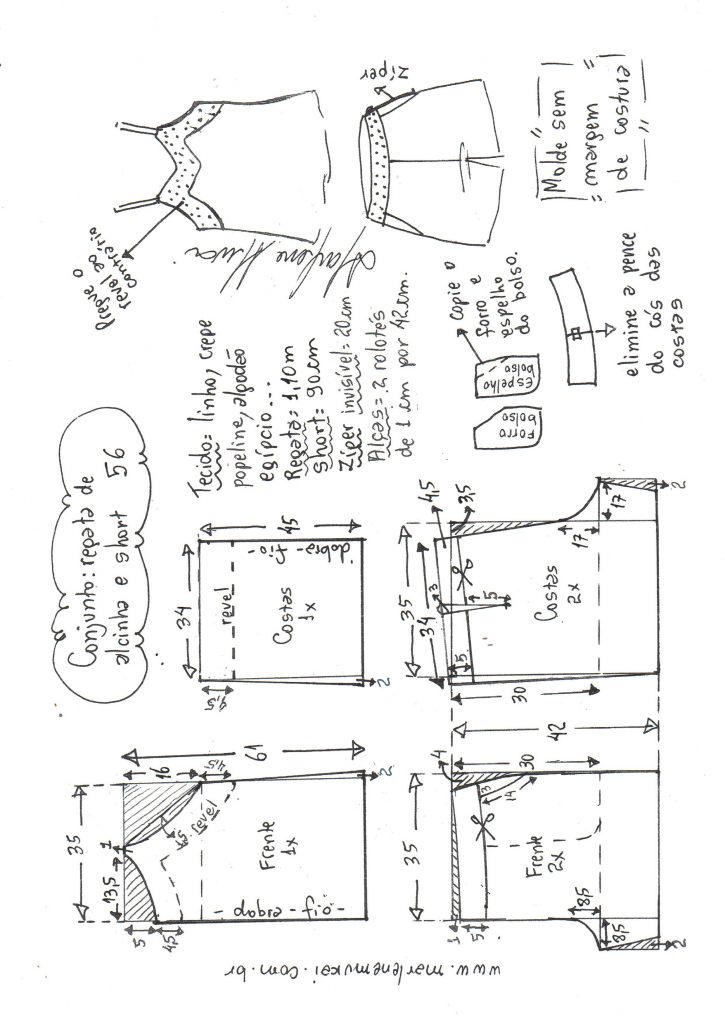 Conjunto: regata de
alcinha e short 56
Pregue o
revel ao
contrário
zíper
Molde sem
margem
de costura
Tecido= linho, crepe
popeline, algodão
egípcio...
Regata= 1,10m
Short= 90cm
Zíper invisível= 20cm
Alças= 2 rolotês
de 1 cm por 42cm.
Copie o
forro e
espelho
do bolso.
Forro
bolso
Espelho
bolso
elimine a pence
do cós das
costas
35
13,5
1
16
4,5
61
1,5
revel
Frente
1x
dobra-fio-
5
4,5
2
34
45
revel
Costas
1x
dobra-fio-
4,5
2
35
4
30
42
3
14
Frente
2x
1
5
8,5
8,5
2
35
34
4,5
3,5
3
5
5
Costas
2x
30
17
17
2
www.marlenemukai.com.br